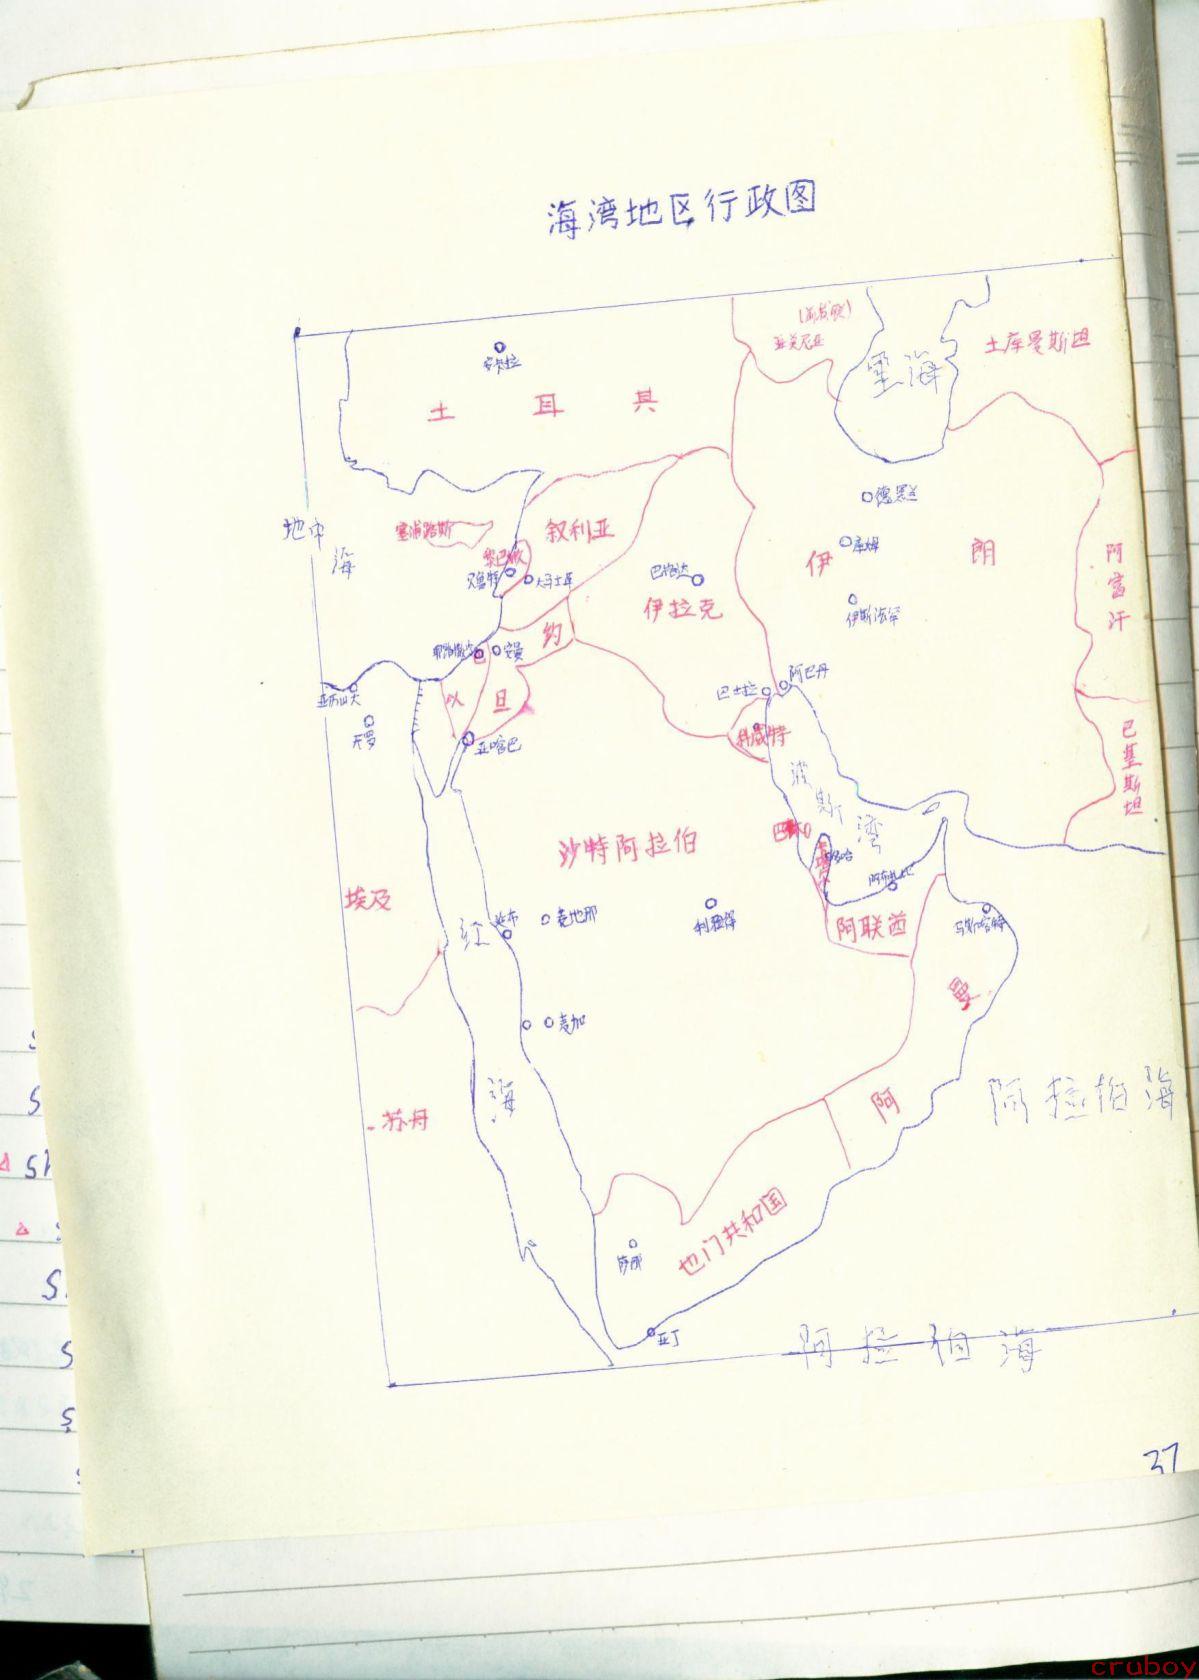 海湾地区行政图
亚美尼亚
里海
土库曼斯坦
安卡拉
土耳其
德黑兰
地中海
塞浦路斯
叙利亚
黎巴嫩
贝鲁特
大马士革
巴格达
伊拉克
库姆
伊朗
伊斯法罕
阿富汗
约旦
安曼
以
亚历山大
开罗
亚喀巴
巴士拉
阿巴丹
科威特
巴基斯坦
波斯湾
沙特阿拉伯
埃及
红海
延布
麦地那
利雅得
阿联酋
马斯喀特
阿曼
麦加
苏丹
阿拉伯海
也门共和国
萨那
亚丁
阿拉伯海
37
cruboy